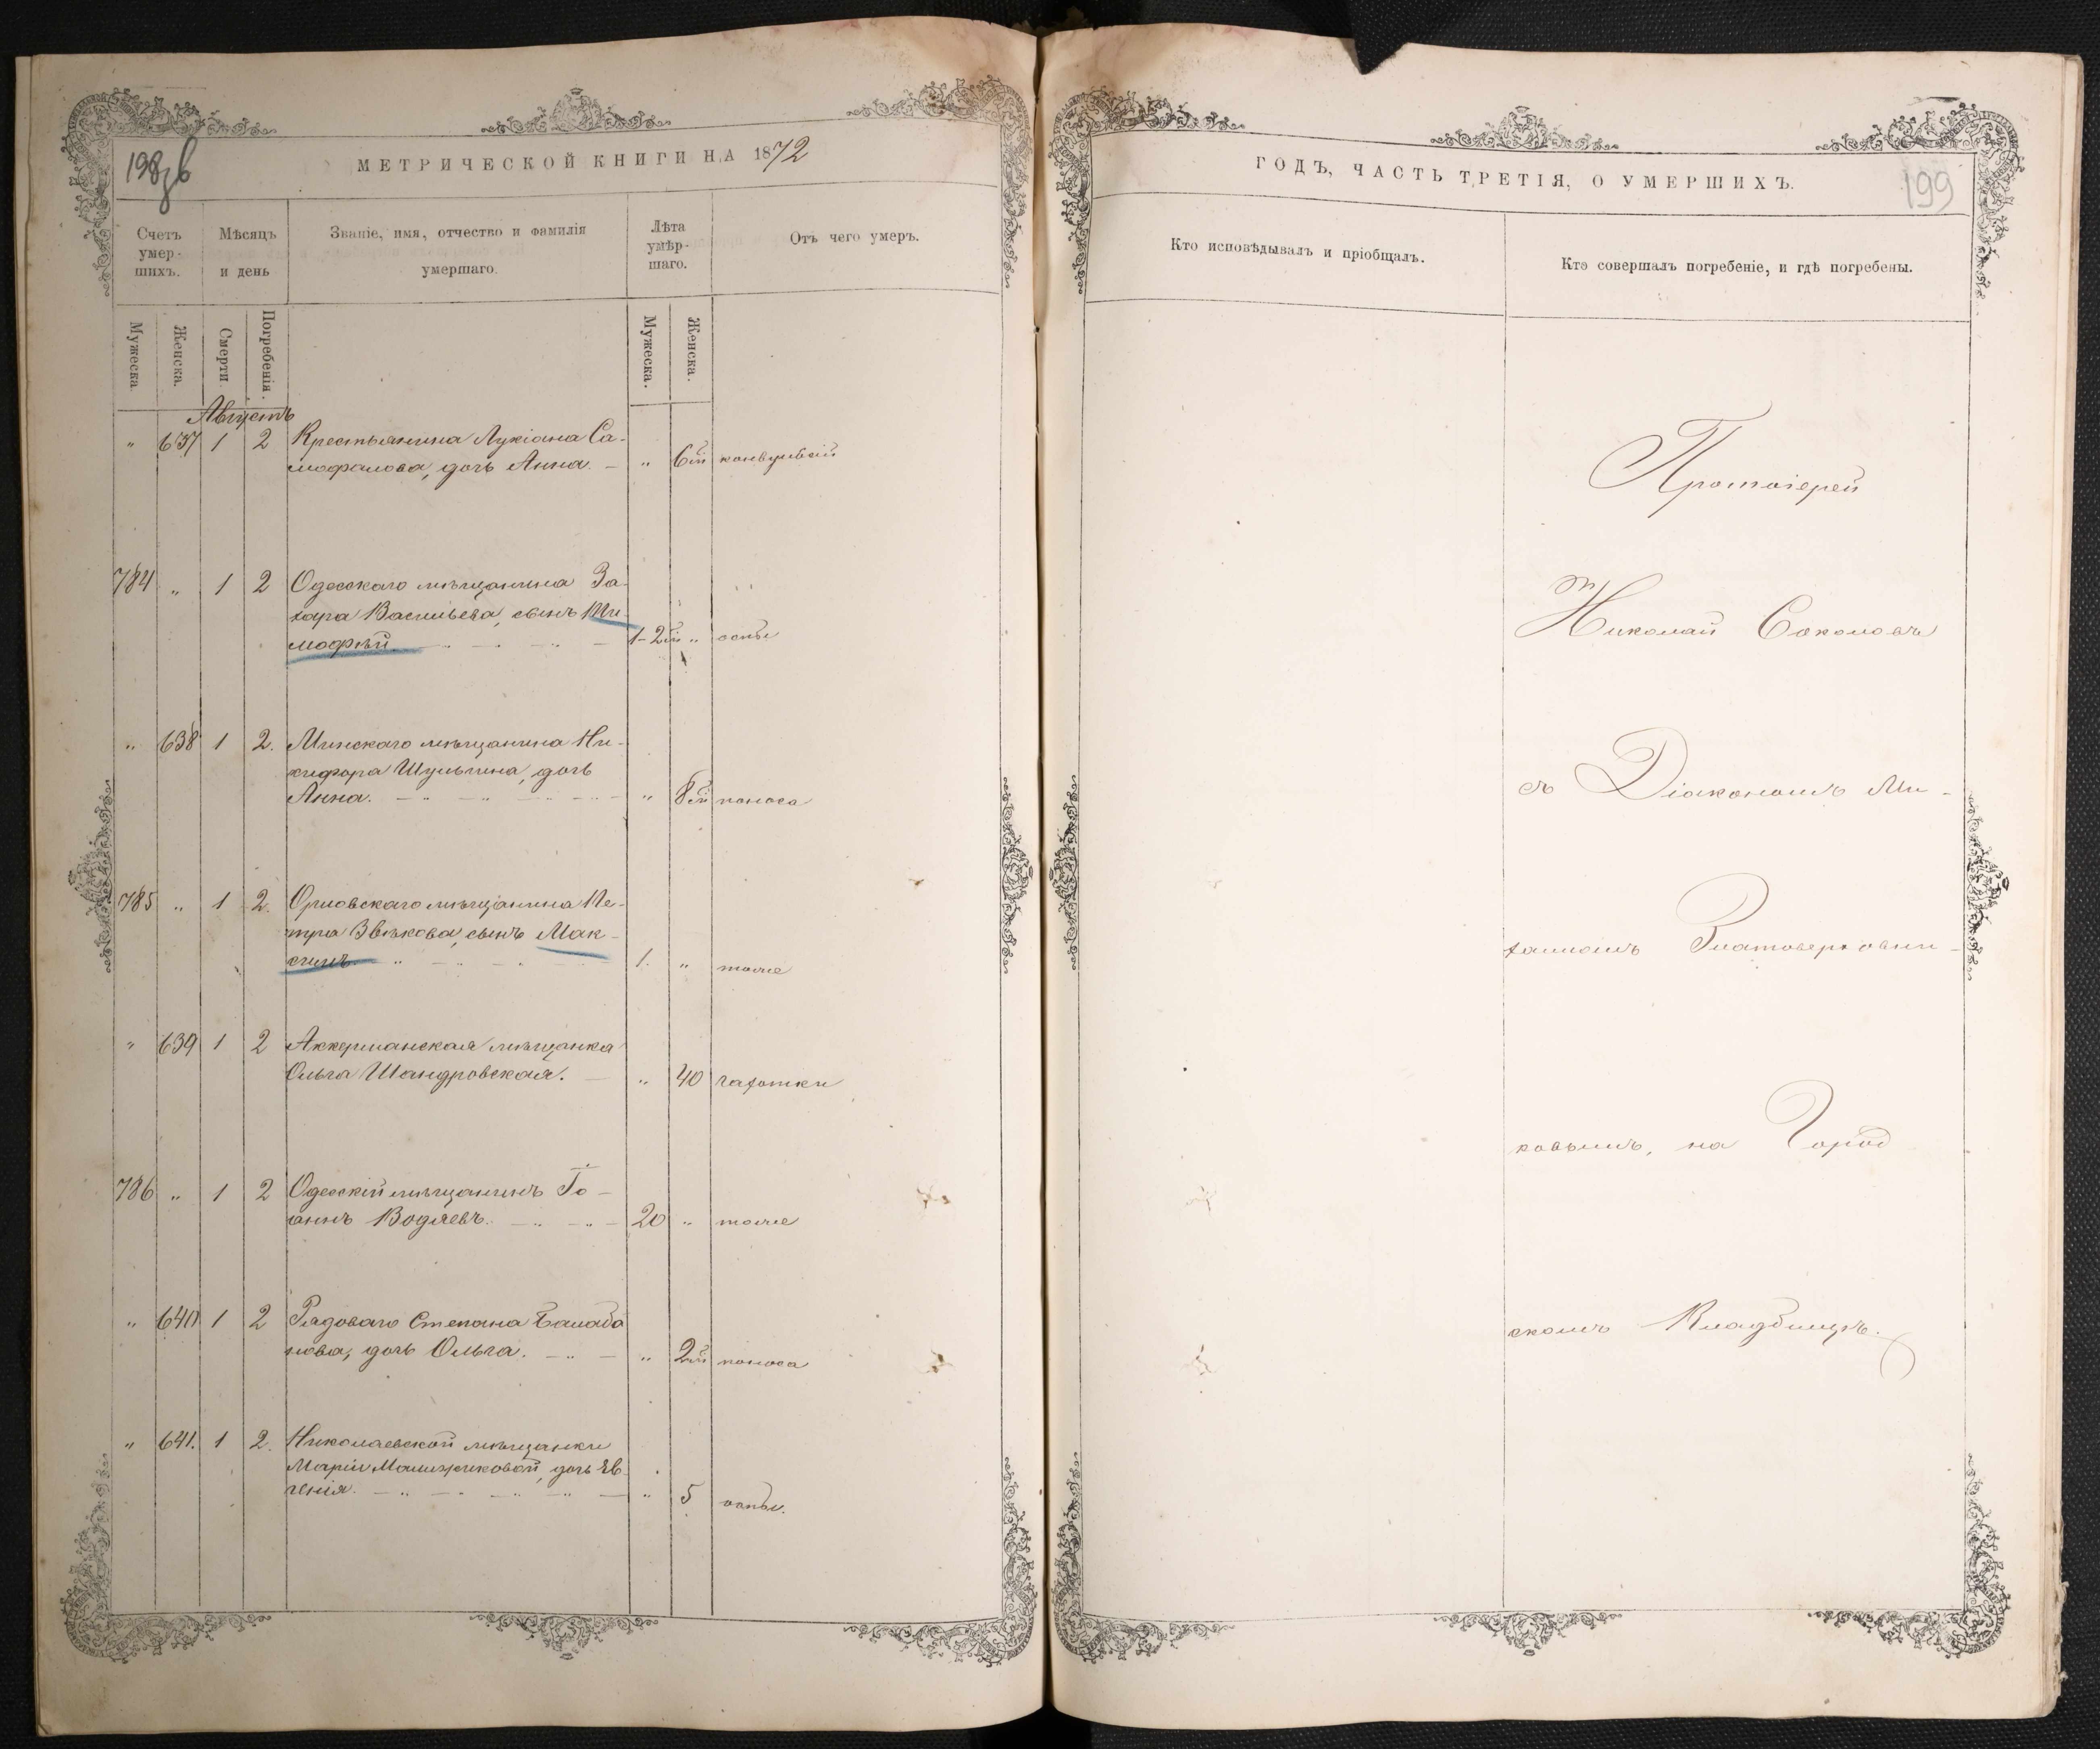 198зв
МЕТРИЧЕСКОЙ КНИГИ НА 1872
Счетъ умер-шихъ.
Мѣсяцъ и день
Званіе, имя, отчество и фамилія умершаго.
Лѣта умѣр-шаго.
Отъ чего умеръ.
Мужеска.
Женска.
Смерти.
Погребенія.
Мужеска.
Женска.
Августъ
" 637 1 2 Крестьянина Лукіана Са-
мофалова, дочь Анна. — " 6 м конвульсій
784 " 1 2 Одесскаго мѣщанина За-
хара Васильева, сынъ Ти-
мофѣй — 1-2 м " оспы
" 638 1 2. Минскаго мѣщанина Ни-
кифора Шульгина, дочь
Анна. — " 8 м поноса
785 " 1 2. Орловскаго мѣщанина Пе-
тра Звѣкова, сынъ Мак-
симъ — 1. " тоже
" 639 1 2 Аккерманская мѣщанка
Ольга Шандровская. — " 40 чахотки
786 " 1 2 Одесскій мѣщанинъ Іо-
аннъ Водяевъ. — 20 " тоже
" 640 1 2 Рядоваго Степана Балаба
нова, дочь Ольга. — " 2 м поноса
" 641. 1 2. Николаевской мѣщанки
Маріи дочь Ев-
генія. — " 5 оспы.
ГОДЪ, ЧАСТЬ ТРЕТІЯ, О УМЕРШИХЪ.
199
Кто исповѣдывалъ и пріобщалъ.
Кто совершалъ погребеніе, и гдѣ погребены.
Протоіерей
Николай Соколовъ
съ Діакономъ Ми-
хаиломъ Златоверховни-
ковымъ, на Город
скомъ Кладбищѣ.